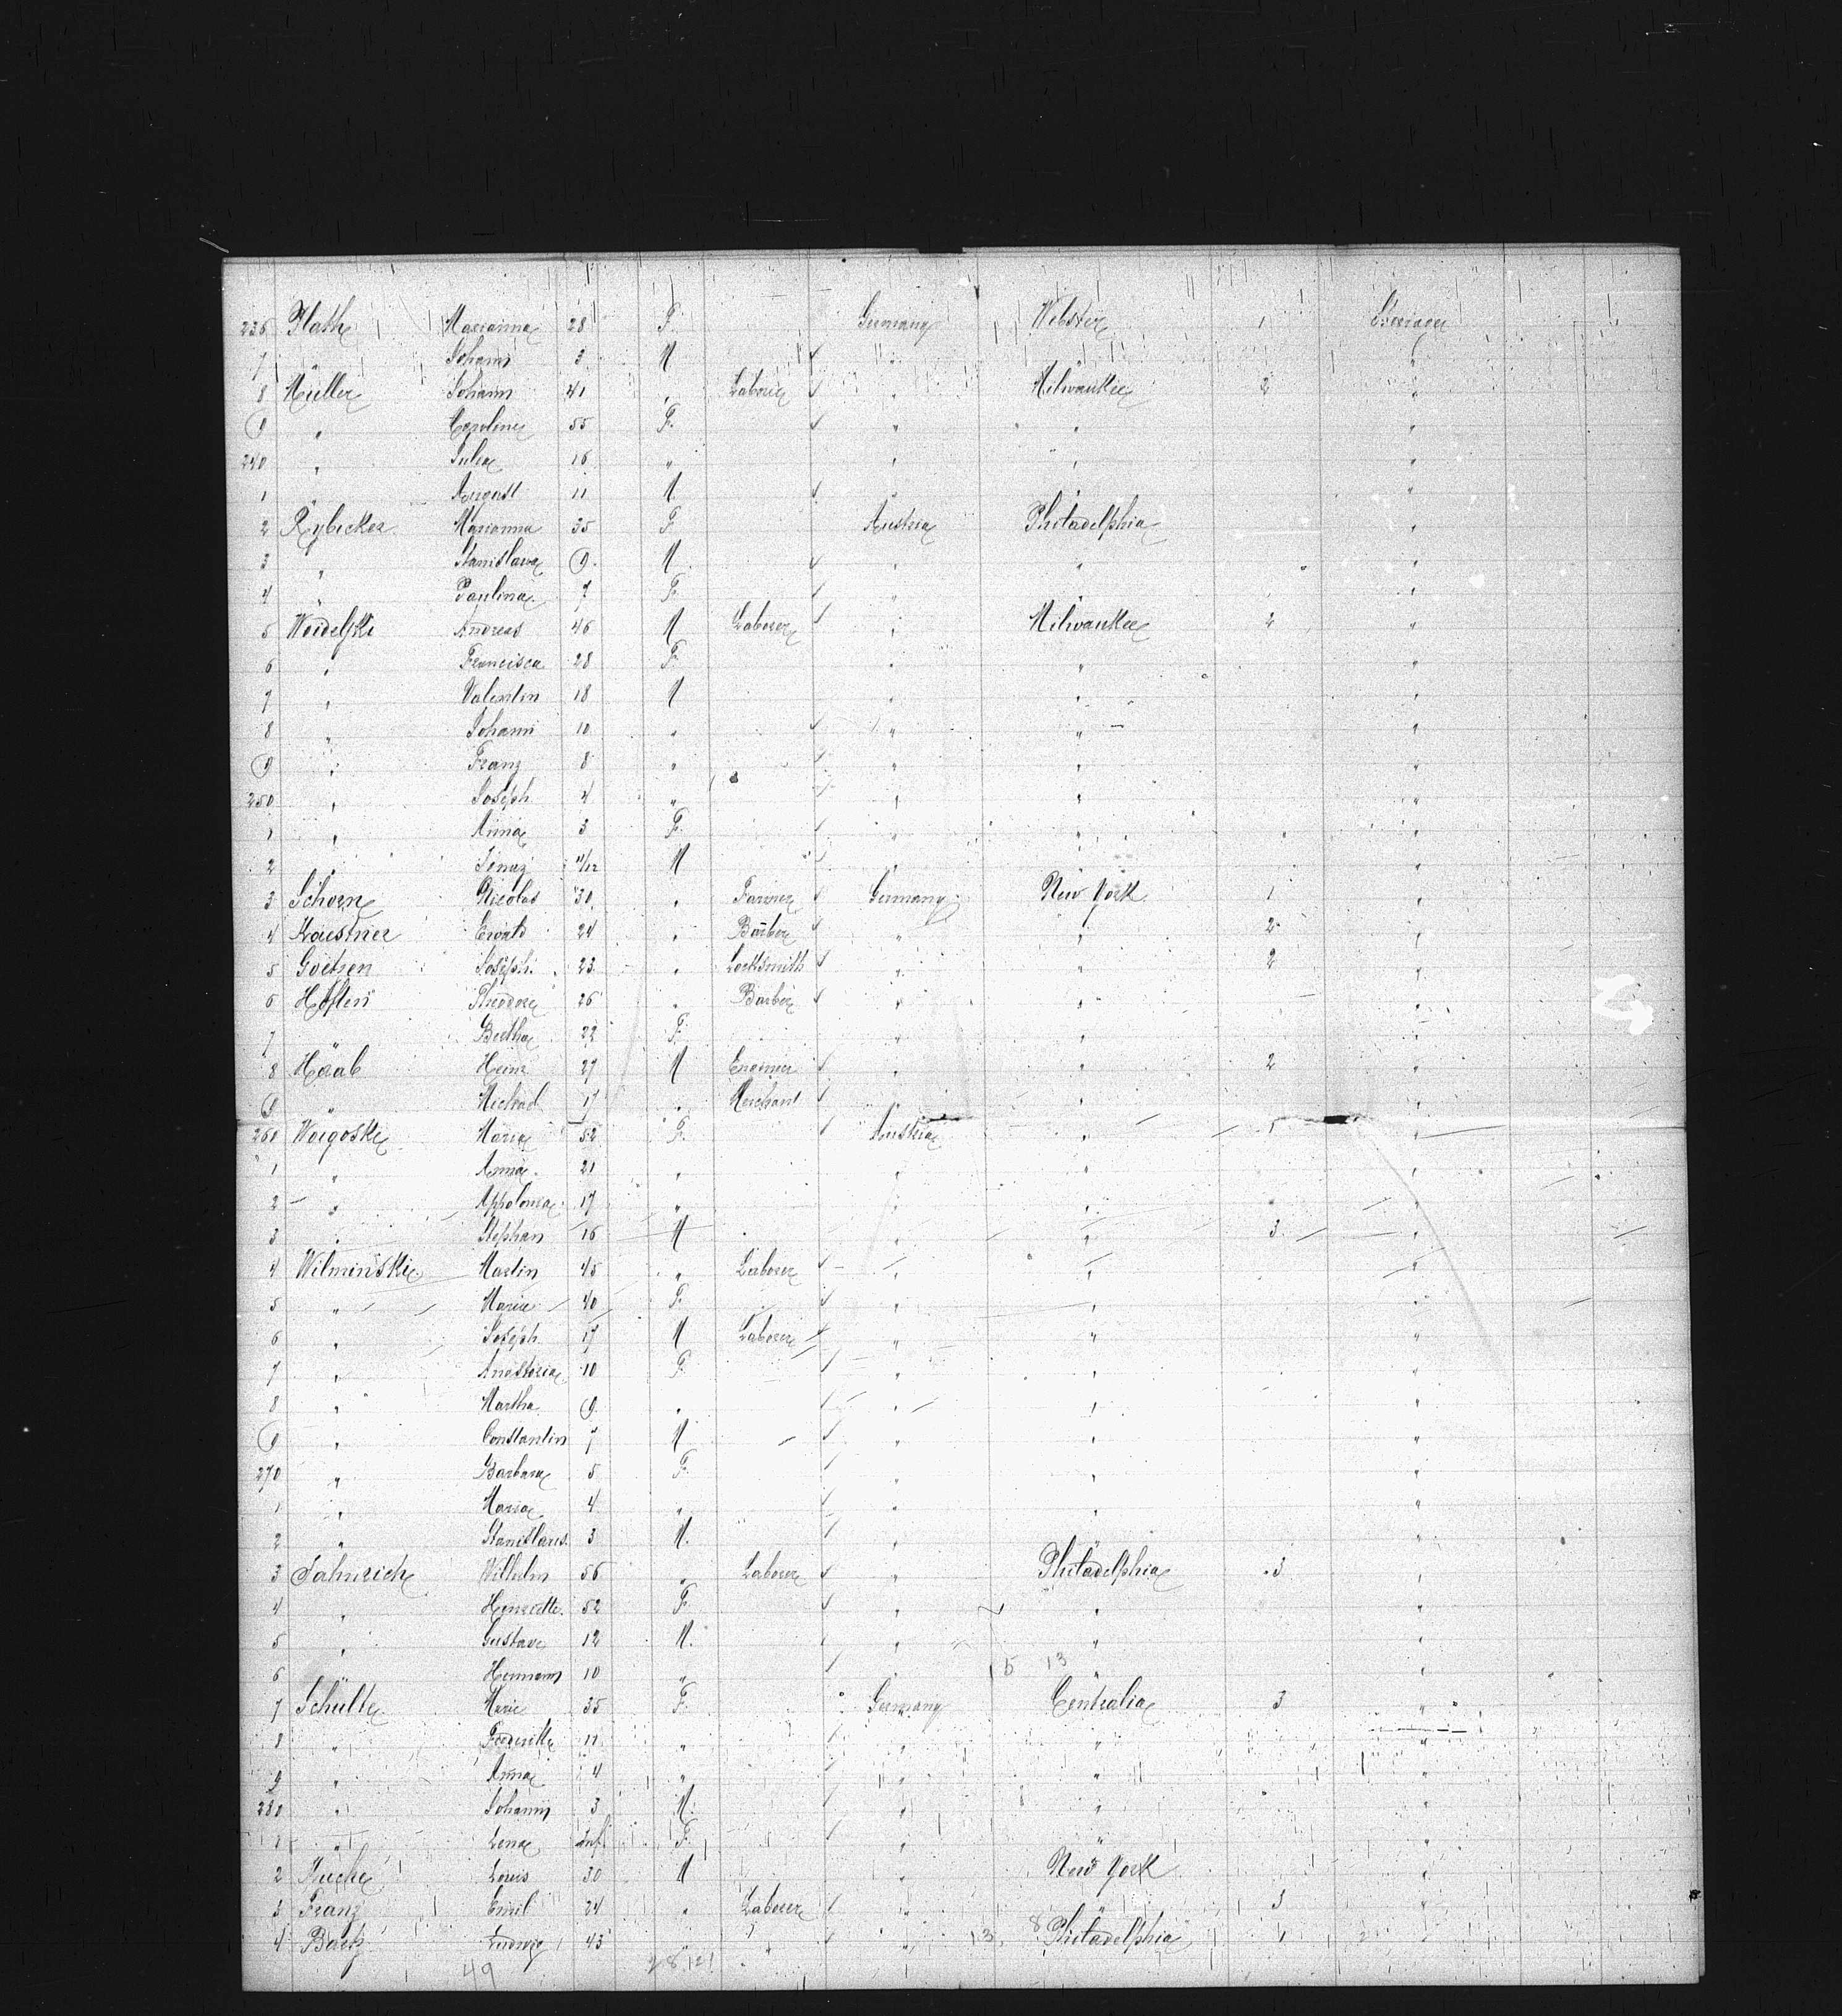 236 Plath Marianna 28 F. Germany Webster 1 Steerage
7 " Johann 3 M " " "
8 Müller Johann 41 " Laborer " Milwaukee 2 "
9 " Caroline 55 F. " " "
240 " Julia 16 " " " "
1 " August 11 M. " " "
2 Rybicker Marianna 35 F. Austria Philadelphia "
3 " Stanislawa 9. M. " " "
4 " Paulina 7 F. " " "
5 Woidelski Andreas 46 M Laborer " Milwaukee 2 "
6 " Francisca 28 F. " " "
7 " Valentin 18 M " " "
8 " Johann 10 " " " "
9 " Franz 8 " " " "
250 " Joseph 4 " " " "
1 " Anna 3 F. " " "
2 " 11/12 M " " "
3 Schorn Nicolas 30 " Farmer Germany New York 1 "
4 Kaestner Ewald 24 " Barber " " 2 "
5 Goetzen Joseph 23 " Locksmith " " 2 "
6 Theodore 26 " Barber " " "
7 Bertha 22 F. " " "
8 Haab Heinr 27 M Engineer " " 2 "
9 " 17 " Merchant " " "
260 Woigoske Maria 52 F. Austria " 1 "
1 " Anna 21 " " " "
2 " Appolonia 17 " " " "
3 " Stephan 16 M " " 3 "
4 Wilminskie Martin 45 " Laborer " " "
5 " Marie 40 F. " " "
6 " Joseph 17 M Laborer " " "
7 " Anastasia 10 F. " " "
8 " Martha 9. " " " "
9 " Constantin 7 M " " "
270 " Barbara 5 F. " " "
1 " Maria 4 " " " "
2 " Stanislaus 3 M. " " "
3 Fahnrich Wilhelm 56 " Laborer " Philadelphia 3 "
4 " Henriette 52 F. " " "
5 " Gustave 12 M. " " "
6 Hermann 10 " " " "
15 13
7 Schulte Marie 35 F. Germany Centralia 3 "
8 " Frederike 11 " " " "
9 " Anna 4 " " " "
280 " Johann 3 M. " " "
1 " Lena Inf. F. " " "
2 Louis 30 M " New York "
3 Franz Emil 24 " Laborer " " 3 "
4 Ludwig 43 " " " Philadelphia 1 "
49